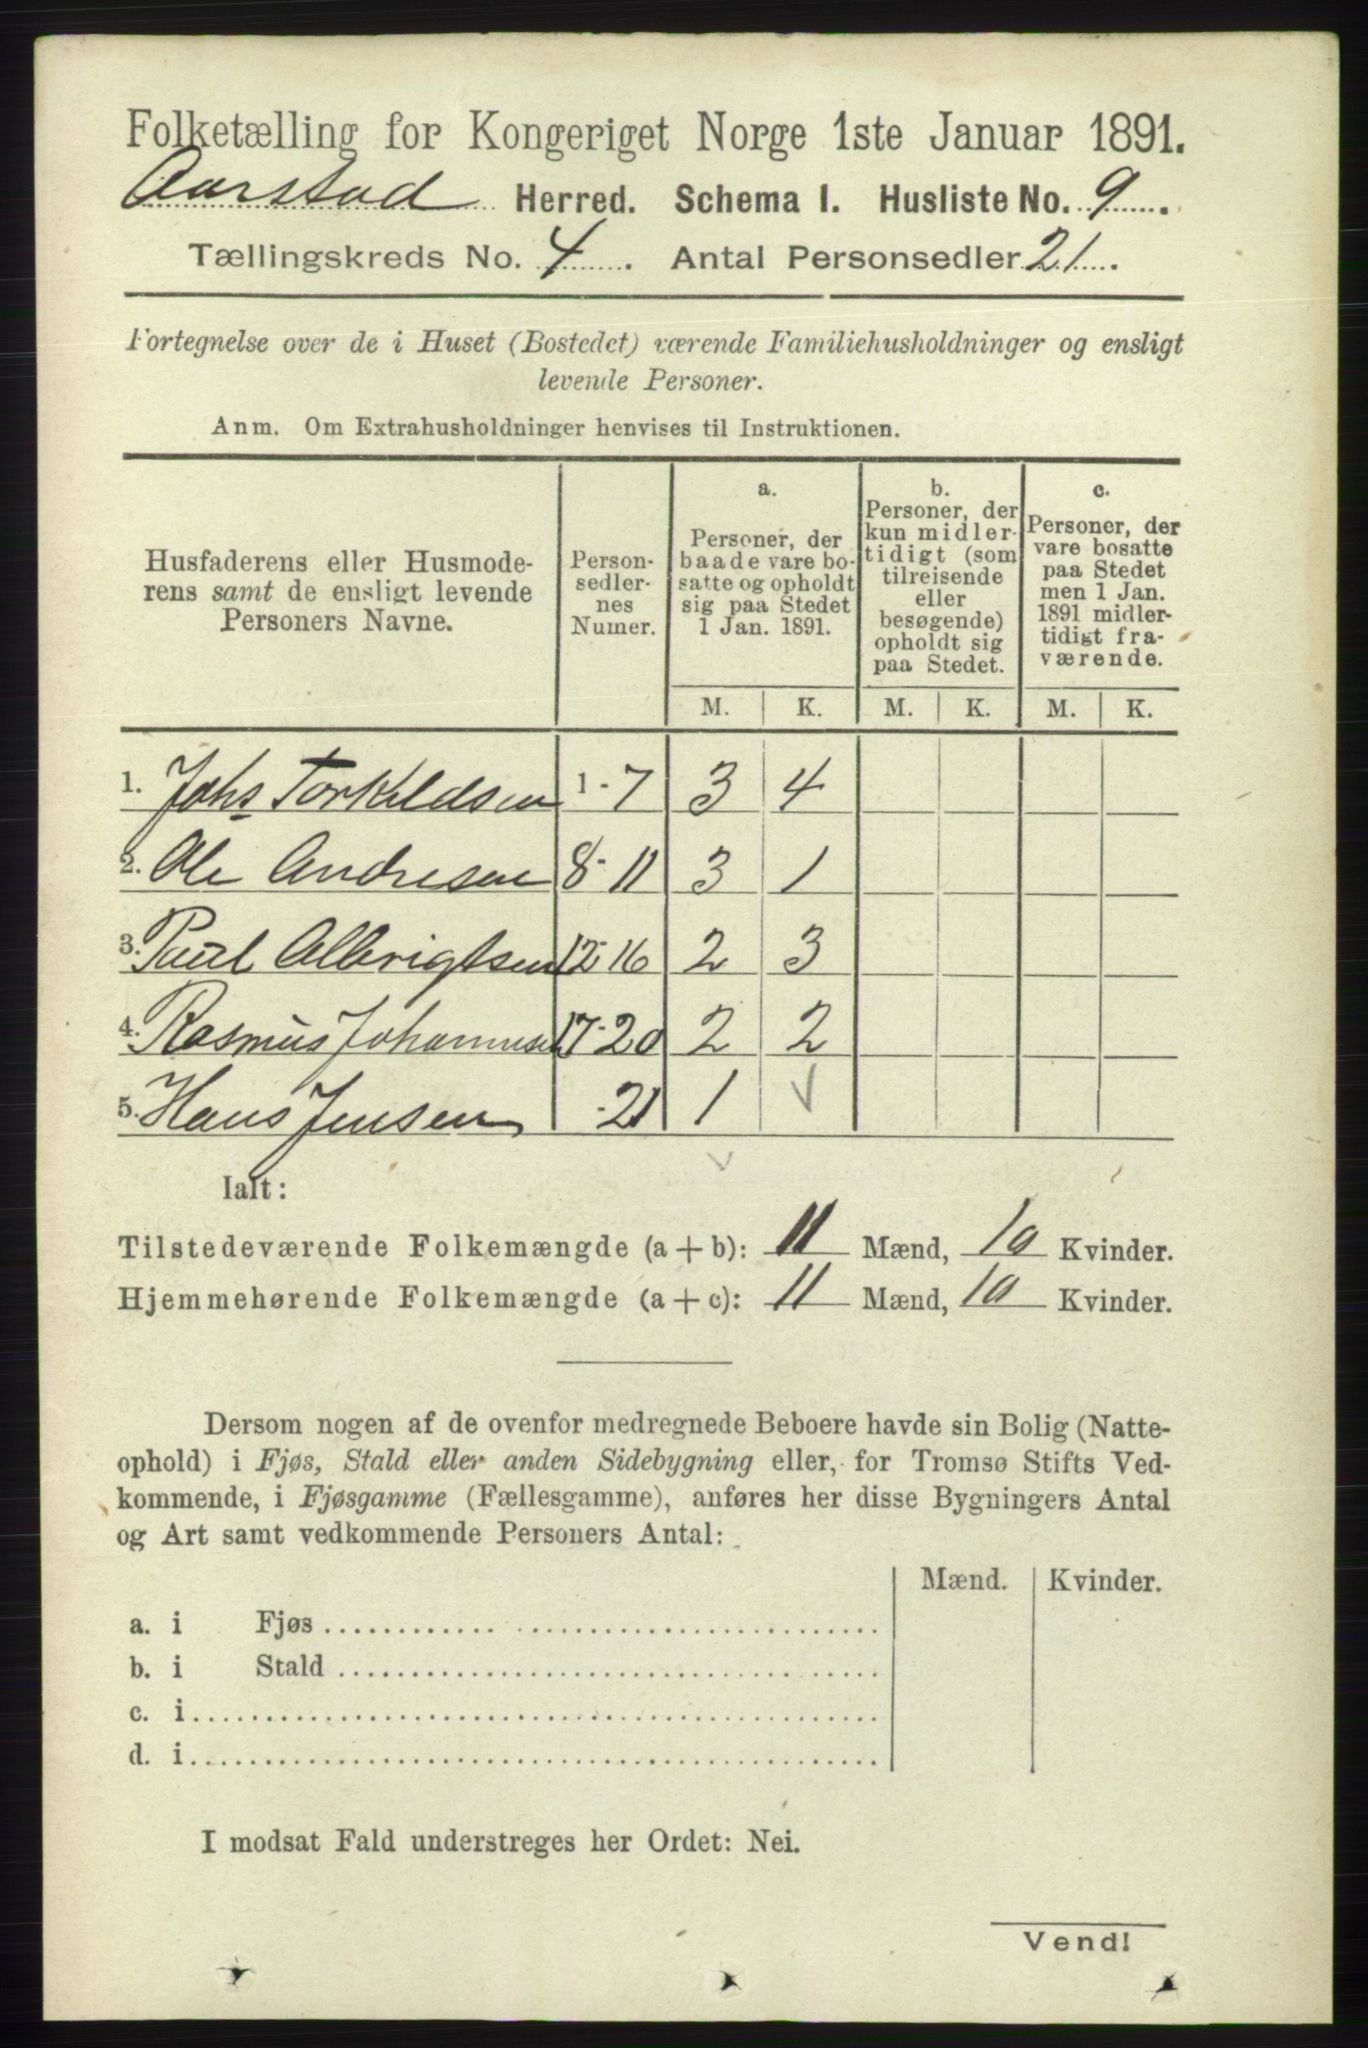 Folketælling for Kongeriget Norge 1ste Januar 1891.
Aarstad Herred. Schema I. Husliste No. 9.
Tællingskreds No. 4. Antal Personsedler 21.
Fortegnelse over de i Huset (Bostedet) værende Familiehusholdninger og ensligt
levende Personer.
Anm. Om Extrahusholdninger henvises til Instruktionen.
Husfaderens eller Husmode-
rens samt de ensligt levende
Personers Navne.
Person-
sedler-
nes
Numer.
a.
Personer, der
baade vare bo-
satte og opholdt
sig paa Stedet
1 Jan. 1891.
b.
Personer, der
kun midler-
tidigt (som
tilreisende
eller
besøgende)
opholdt sig
paa Stedet.
c.
Personer, der
vare bosatte
paa Stedet
men 1 Jan.
1891 midler-
tidigt fra-
værende.
M. K. M. K. M. K.
1. Johs Torkildsen 1-7 3 4
2. Ole Andresen 8-11 3 1
3. Paul Albrigtsen 12-16 2 3
4. Rasmus Johannesen 17-20 2 2
5. Hans Jensen -21 1
Ialt:
Tilstedeværende Folkemængde (a + b): 11 Mænd, 10 Kvinder.
Hjemmehørende Folkemængde (a + c): 11 Mænd, 10 Kvinder.
Dersom nogen af de ovenfor medregnede Beboere havde sin Bolig (Natte-
ophold) i Fjøs, Stald eller anden Sidebygning eller, for Tromsø Stifts Ved-
kommende, i Fjøsgamme (Fællesgamme), anføres her disse Bygningers Antal
og Art samt vedkommende Personers Antal:
Mænd. Kvinder.
a. i Fjøs
b. i Stald
c. i
d. i
I modsat Fald understreges her Ordet: Nei.
Vend!